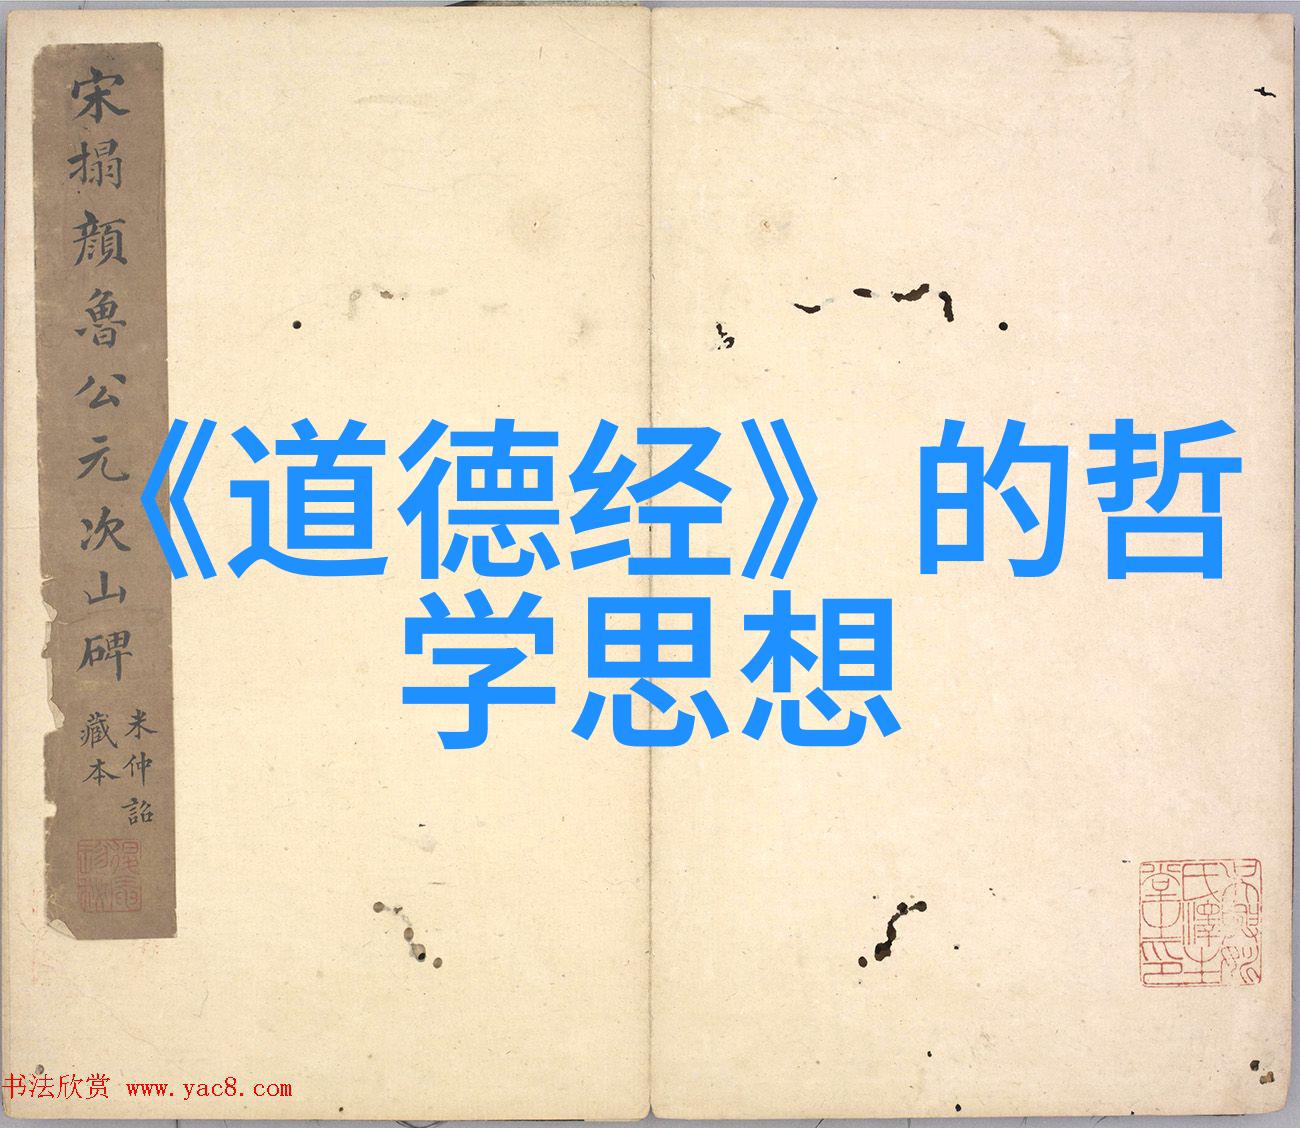 宋搨顔魯公元次山碑
米仲詔
藏本
《道德经》的哲
学思想
书法欣赏 www.yac8.com